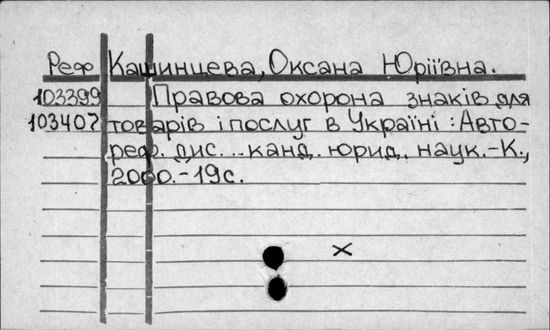 Реф Кашинцева, Оксана Юріївна.
103399 Правова охорона знаків для
103407 товарів і послуг в Україні : Авто-
реф. дис. ... канд. юрид. наук. - К.,
2000. - 19 с.
×